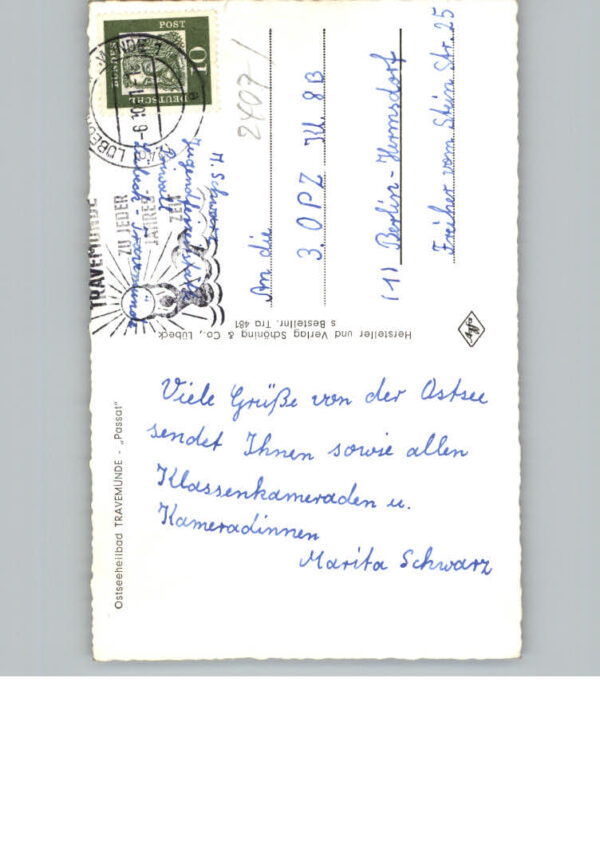 Viele Grüße von der Ostsee
sendet Ihnen sowie allen
Klassenkameraden u.
Kameradinnen
Marita Schwarz
Ostseeheilbad TRAVEMÜNDE - „Passat"
Hersteller und Verlag Schöning & Co., Lübeck
s Bestellnr. Tra 481
M. Schwarz
Lübeck - Travemünde
An die
3. OPZ Kl. 8B
(1) Berlin-Hermsdorf
Freiher vom Stein Str. 25
2407-1
TRAVEMÜNDE
ZU JEDER
JAHRES-
ZEIT
DEUTSCHE
BUNDES
POST
10